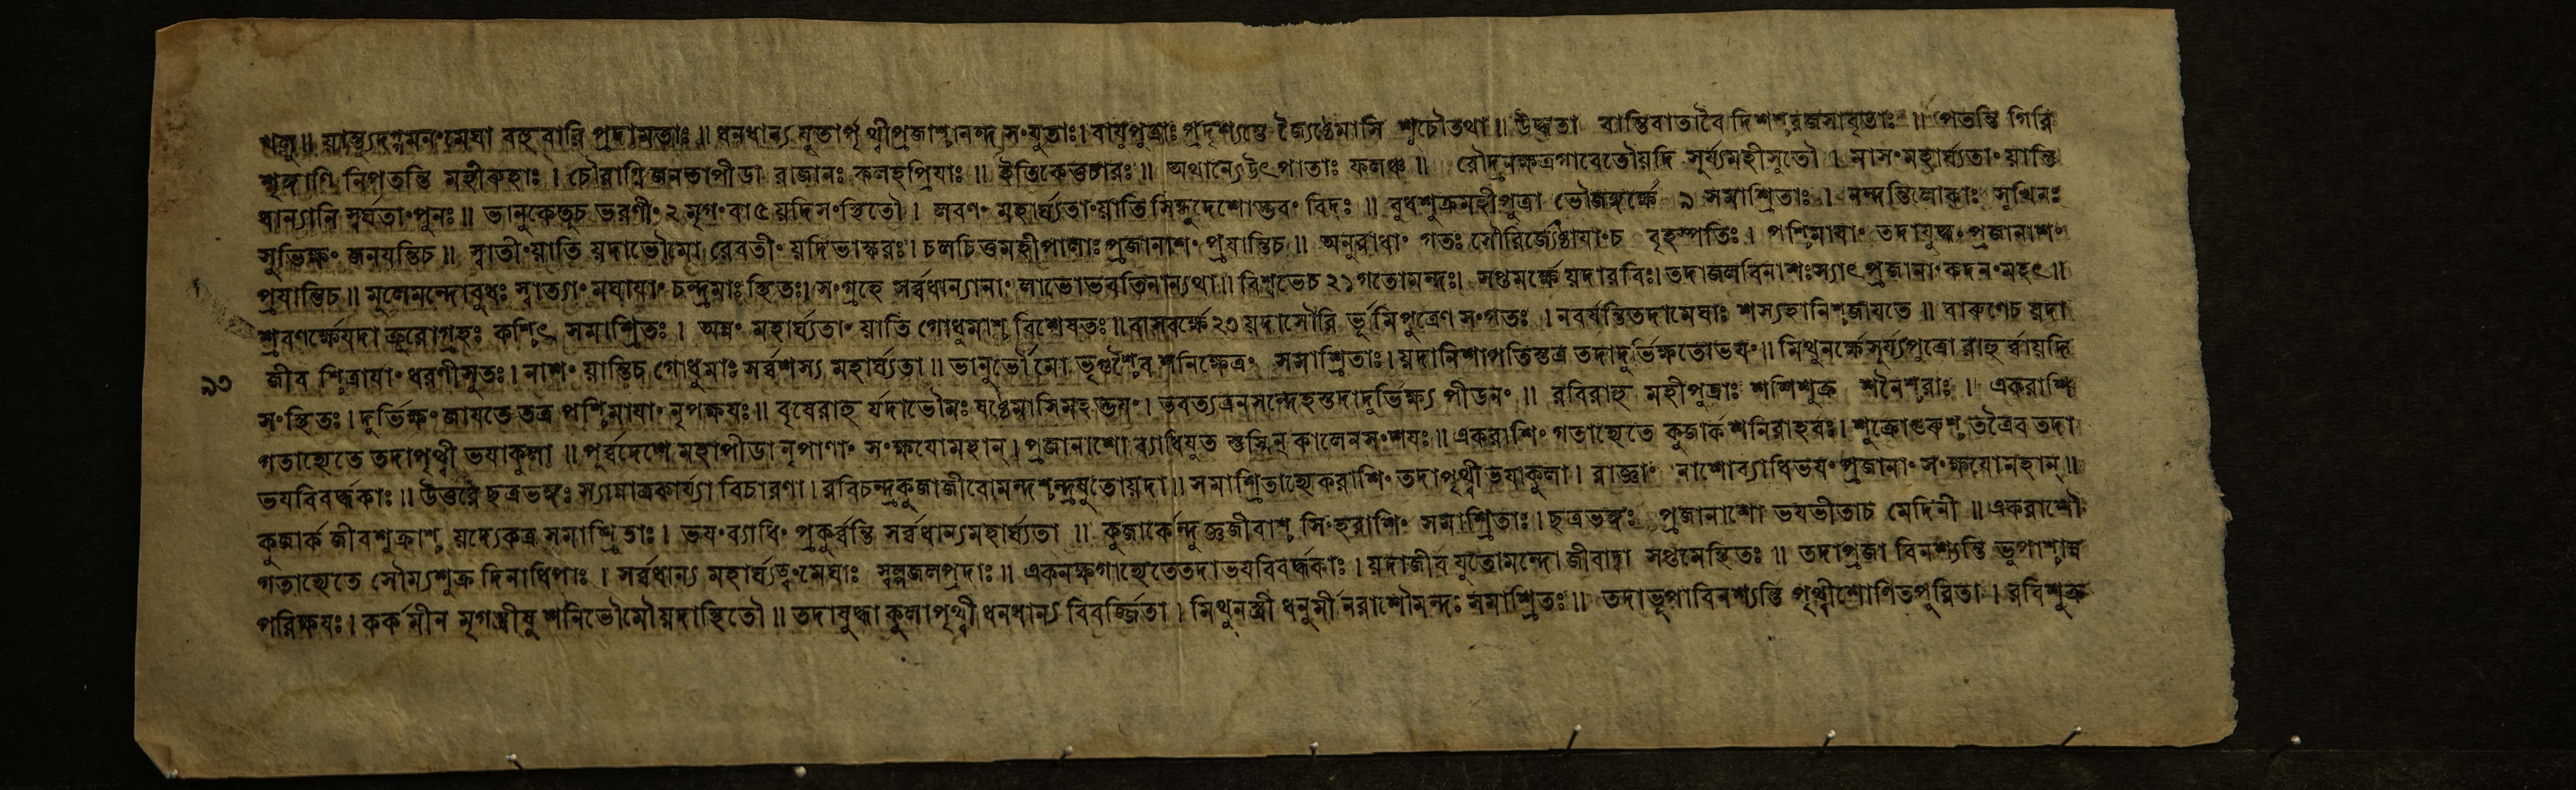 খলু॥ য়ান্ত্যুদগ্গমনং মেঘা বহু বারি প্রদামতাঃ॥ ধনধান্য যুতার্পৃথ্বীপ্রজাশ্চানন্দ সংযুতাঃ। বায়ুপুত্রাঃ প্রদৃশ্যন্তে জ্যৈষ্ঠেমাসি শুচৌতথা॥ উদ্ধতা বান্তিবাতাবৈ দিশশ্চরজসাবৃতাঃ॥ পতন্তি গিরি
শৃঙ্গাণি নিপতন্তি মহীরুহাঃ। চৌরাগ্নি জনতাপীডা রাজানঃ কলহপ্রিযাঃ॥ ইতিকেতুচারঃ॥ অথান্যেউৎপাতাঃ ফলঞ্চ॥ রৌদ্রনক্ষত্রগাবেতৌয়দি সূর্য্যমহীসুতৌ। মাসং মহার্ঘ্যতাং য়ান্তি
ধান্যানি স্বর্ঘতাং পুনঃ॥ ভানুকেতুচ ভরণীং ২ মৃগং বা ৫ য়দিসংস্থিতৌ। লবণং মহার্ঘ্যতাং য়াতি সিন্ধুদেশোদ্ভবং বিদঃ॥ বুধশুক্রমহীপুত্রা ভৌজঙ্গর্ক্ষে ৯ সমাশ্রিতাঃ। নন্দন্তিলোকাঃ সুখিনঃ
সুভিক্ষং জনযন্তিচ॥ স্বাতীং য়াতি য়দাভৌমো রেবতীং য়দিভাস্করঃ। চলচিত্তমহীপালাঃ প্রজানাশং প্রযান্তিচ॥ অনুরাধাং গতঃ সৌরির্জ্যেষ্ঠাযাং চ বৃহস্পতিঃ। পশ্চিমাযাং তদাযুদ্ধং প্রজানাশং
প্রযান্তিচ॥ মূলেমন্দোবুধঃ স্বাত্যাং মঘাযাং চন্দ্রমাঃ স্থিতঃ। সংগ্রহে সর্ব্বধান্যানাং লাভোভবতিনান্যথা॥ বিশ্বভেচ ২১ গতোমন্দঃ। সপ্তমর্ক্ষে য়দারবিঃ। তদাজলবিনাশঃস্যাৎ প্রজানাং কদনং মহৎ॥
শ্রবণর্ক্ষেযদা ক্রূরোগ্রহঃ কশ্চিৎ সমাশ্রিতঃ। অন্নং মহার্ঘ্যতাং য়াতি গোধুমাশ্চ বিশেষতঃ॥ বাসবর্ক্ষে ২৩ য়দাসৌরি র্ভূমিপুত্রেণ সংগতঃ। নবর্ষন্তিতদামেঘাঃ শস্যহানিশ্চজাযতে॥ বারুণেচ য়দা
৯৩ জীব শ্চিত্রাযাং ধরণীসুতঃ। নাশং য়ান্তিচ গোধুমাঃ সর্ব্বশস্য মহার্ঘ্যতা॥ ভানুর্ভৌমো ভৃগুশ্চৈব শনিক্ষেত্রং সমাশ্রিতাঃ। য়দানিশাপতিস্তত্র তদাদুর্ভিক্ষতোভযং॥ মিথুনর্ক্ষেসূর্য্যপুত্রো রাহু র্ব্বায়দি
সংস্থিতঃ। দুর্ভিক্ষং জাযতে তত্র পশ্চিমাযাং নৃপক্ষযঃ॥ বৃষেরাহু র্যদাভৌমঃ ষষ্ঠেমাসিমহদ্ভযং। ভবত্যত্রনসন্দেহস্তদাদুর্ভিক্ষ্য পীডনং॥ রবিরাহু মহীপুত্রাঃ শশিশুক্র শনৈশ্চরাঃ। একরাশি
গতাহ্যেতে তদাপৃথ্বী ভযাকুলা॥ পূর্ব্বদেশে মহাপীডা নৃপাণাং সংক্ষযোমহান্। প্রজানাশো ব্যাধিযুত স্তস্মিন্ কালেনসংশযঃ॥ একরাশিং গতাহ্যেতে কুজার্কশনিরাহবঃ। শুক্রোগুরুশ্চ তত্রৈব তদা
ভযবিবর্দ্ধকাঃ॥ উত্তরে ছত্রভঙ্গঃ স্যান্নাত্রকার্য্যা বিচারণা। রবিচন্দ্রকুজাজীবোমন্দশ্চন্দ্রযুতোয়দা॥ সমাশ্রিতাহ্যেকরাশিং তদাপৃথ্বী ভযাকুলা। রাজ্ঞাং নাশোব্যাধিভযং প্রজানাং সংক্ষযোমহান্॥
কুজার্ক জীবশুক্রাশ্চ য়দ্যেকত্র সমাশ্রিতাঃ। ভযং ব্যাধিং প্রকুর্ব্বন্তি সর্ব্বধান্যমহার্ঘ্যতা॥ কুজার্কেন্দুজ্ঞজীবাশ্চ সিংহরাশিং সমাশ্রিতাঃ। ছত্রভঙ্গঃ প্রজানাশো ভযভীতাচ মেদিনী॥ একরাশৌ
গতাহ্যেতে সৌম্যশুক্র দিনাধিপাঃ। সর্ব্বধান্য মহার্ঘ্যত্বং মেঘাঃ স্বল্পজলপ্রদাঃ॥ একনক্ষগাহ্যেতেতদাভযবিবর্দ্ধকাঃ। য়দাজীব যুতোমন্দো জীবাদ্বা সপ্তমেস্থিতঃ॥ তদাপ্রজা বিনশ্যন্তি ভূপাশ্চান্ন
পরিক্ষযঃ। কর্কমীন মৃগস্ত্রীষু শনিভৌমৌয়দাস্থিতৌ॥ তদাযুদ্ধাকুলাপৃথ্বী ধনধান্য বিবর্জ্জিতা। মিথুনস্ত্রী ধনুর্মীনরাশৌমন্দঃ সমাশ্রিতঃ॥ তদাভূপাবিনশ্যন্তি পৃথ্বীশোণিতপূরিতা। রবিশুক্র